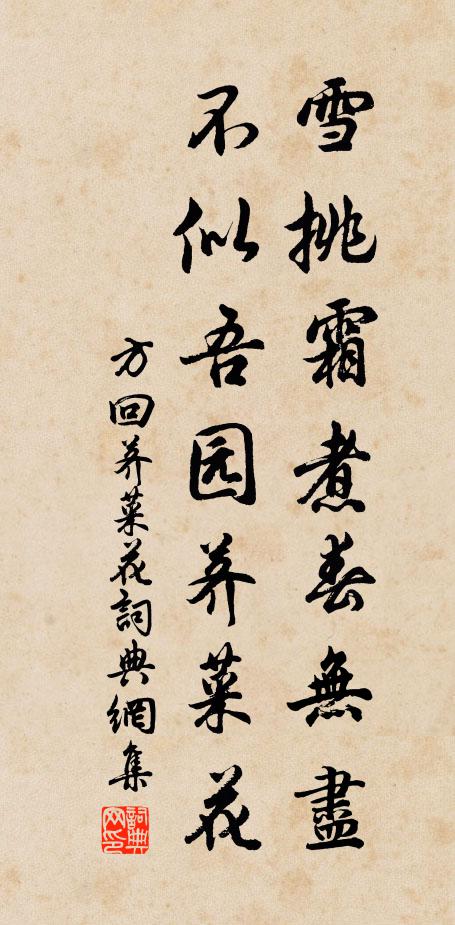 雪挑霜煮春無盡
不似吾园荠菜花
方回荠菜花詞典網集
詞典网印